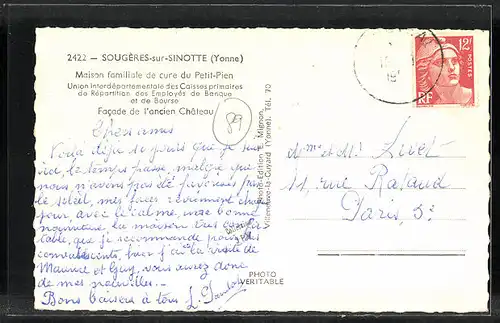 2422 - SOUGÈRES-sur-SINOTTE (Yonne)
Maison familiale de cure du Petit-Pien
Union Interdépartementale des Caisses primaires
de Répartition des Employés de Banque
et de Bourse
Façade de l'ancien Château
89
Chers amis
Voilà déjà 10 jours que je suis
ici le temps passe, malgré que
nous n'avons pas été favorisés par
le soleil, mes forces reviennent chaque
jour, avec le calme, une bonne
nourriture, la maison très
table, que je recommande pour des
convalescents, hier j'ai la visite de
Maurice et Guy, vous aurez donc
de mes nouvelles.
Bons baisers à tous
Photo-Edition Mignon
Villeneuve-la-Guyard (Yonne). Tél. 70
PHOTO
VERITABLE
12F
POSTES
RF
Mme et Mr Livet
11, rue Rataud
Paris, 5e